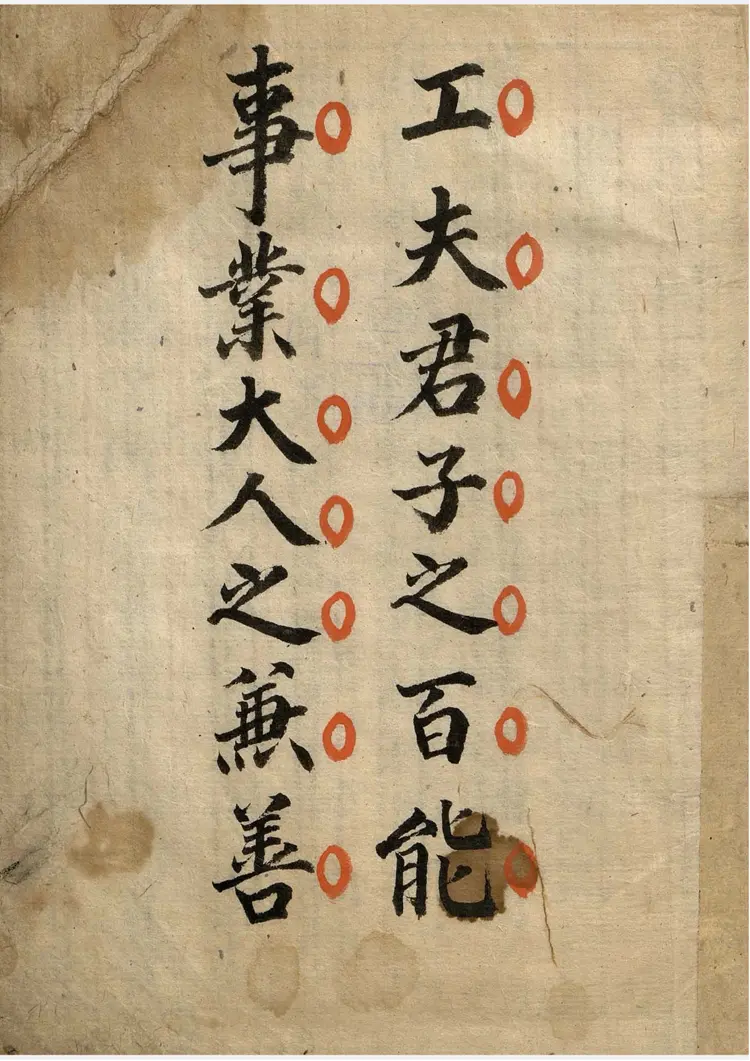 工夫君子之百能
事業大人之兼善